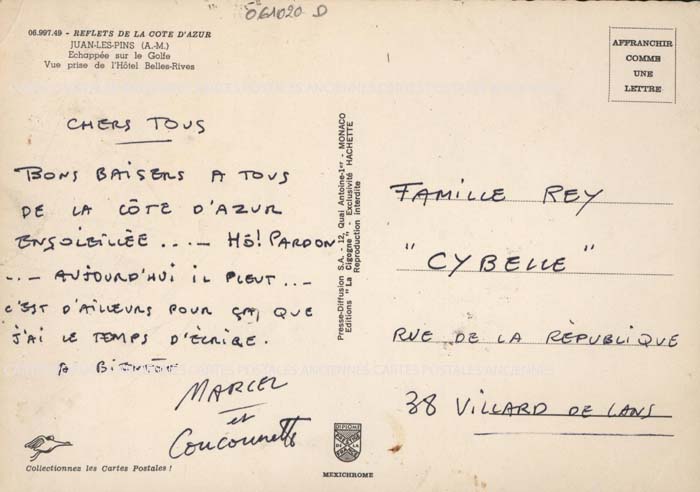 061020 D
06.997.49 - REFLETS DE LA COTE D'AZUR
JUAN-LES-PINS (A.-M.)
Echappée sur le Golfe
Vue prise de l'Hôtel Belles-Rives
AFFRANCHIR
COMME
UNE
LETTRE
CARTES POSTALES ANCIENNES CARTES POSTALES ANCIENNES
CHERS TOUS
BONS BAISERS A TOUS
DE LA CÔTE D'AZUR
ENSOLEILLÉE ... - HÔ! PARDON
... - AUJOURD'HUI IL PLEUT ...-
C'EST D'AILLEURS POUR ÇA, QUE
J'AI LE TEMPS D'ÉCRIRE.
A BIENTÔT
MARCEL
et
Presse-Diffusion S.A. - 12, Quai Antoine-1er - MONACO
Editions "La Cigogne" - Exclusivité HACHETTE
Reproduction interdite
FAMILLE REY
"CYBELLE"
RUE DE LA RÉPUBLIQUE
38 VILLARD DE LANS
Collectionnez les Cartes Postales !
MEXICHROME